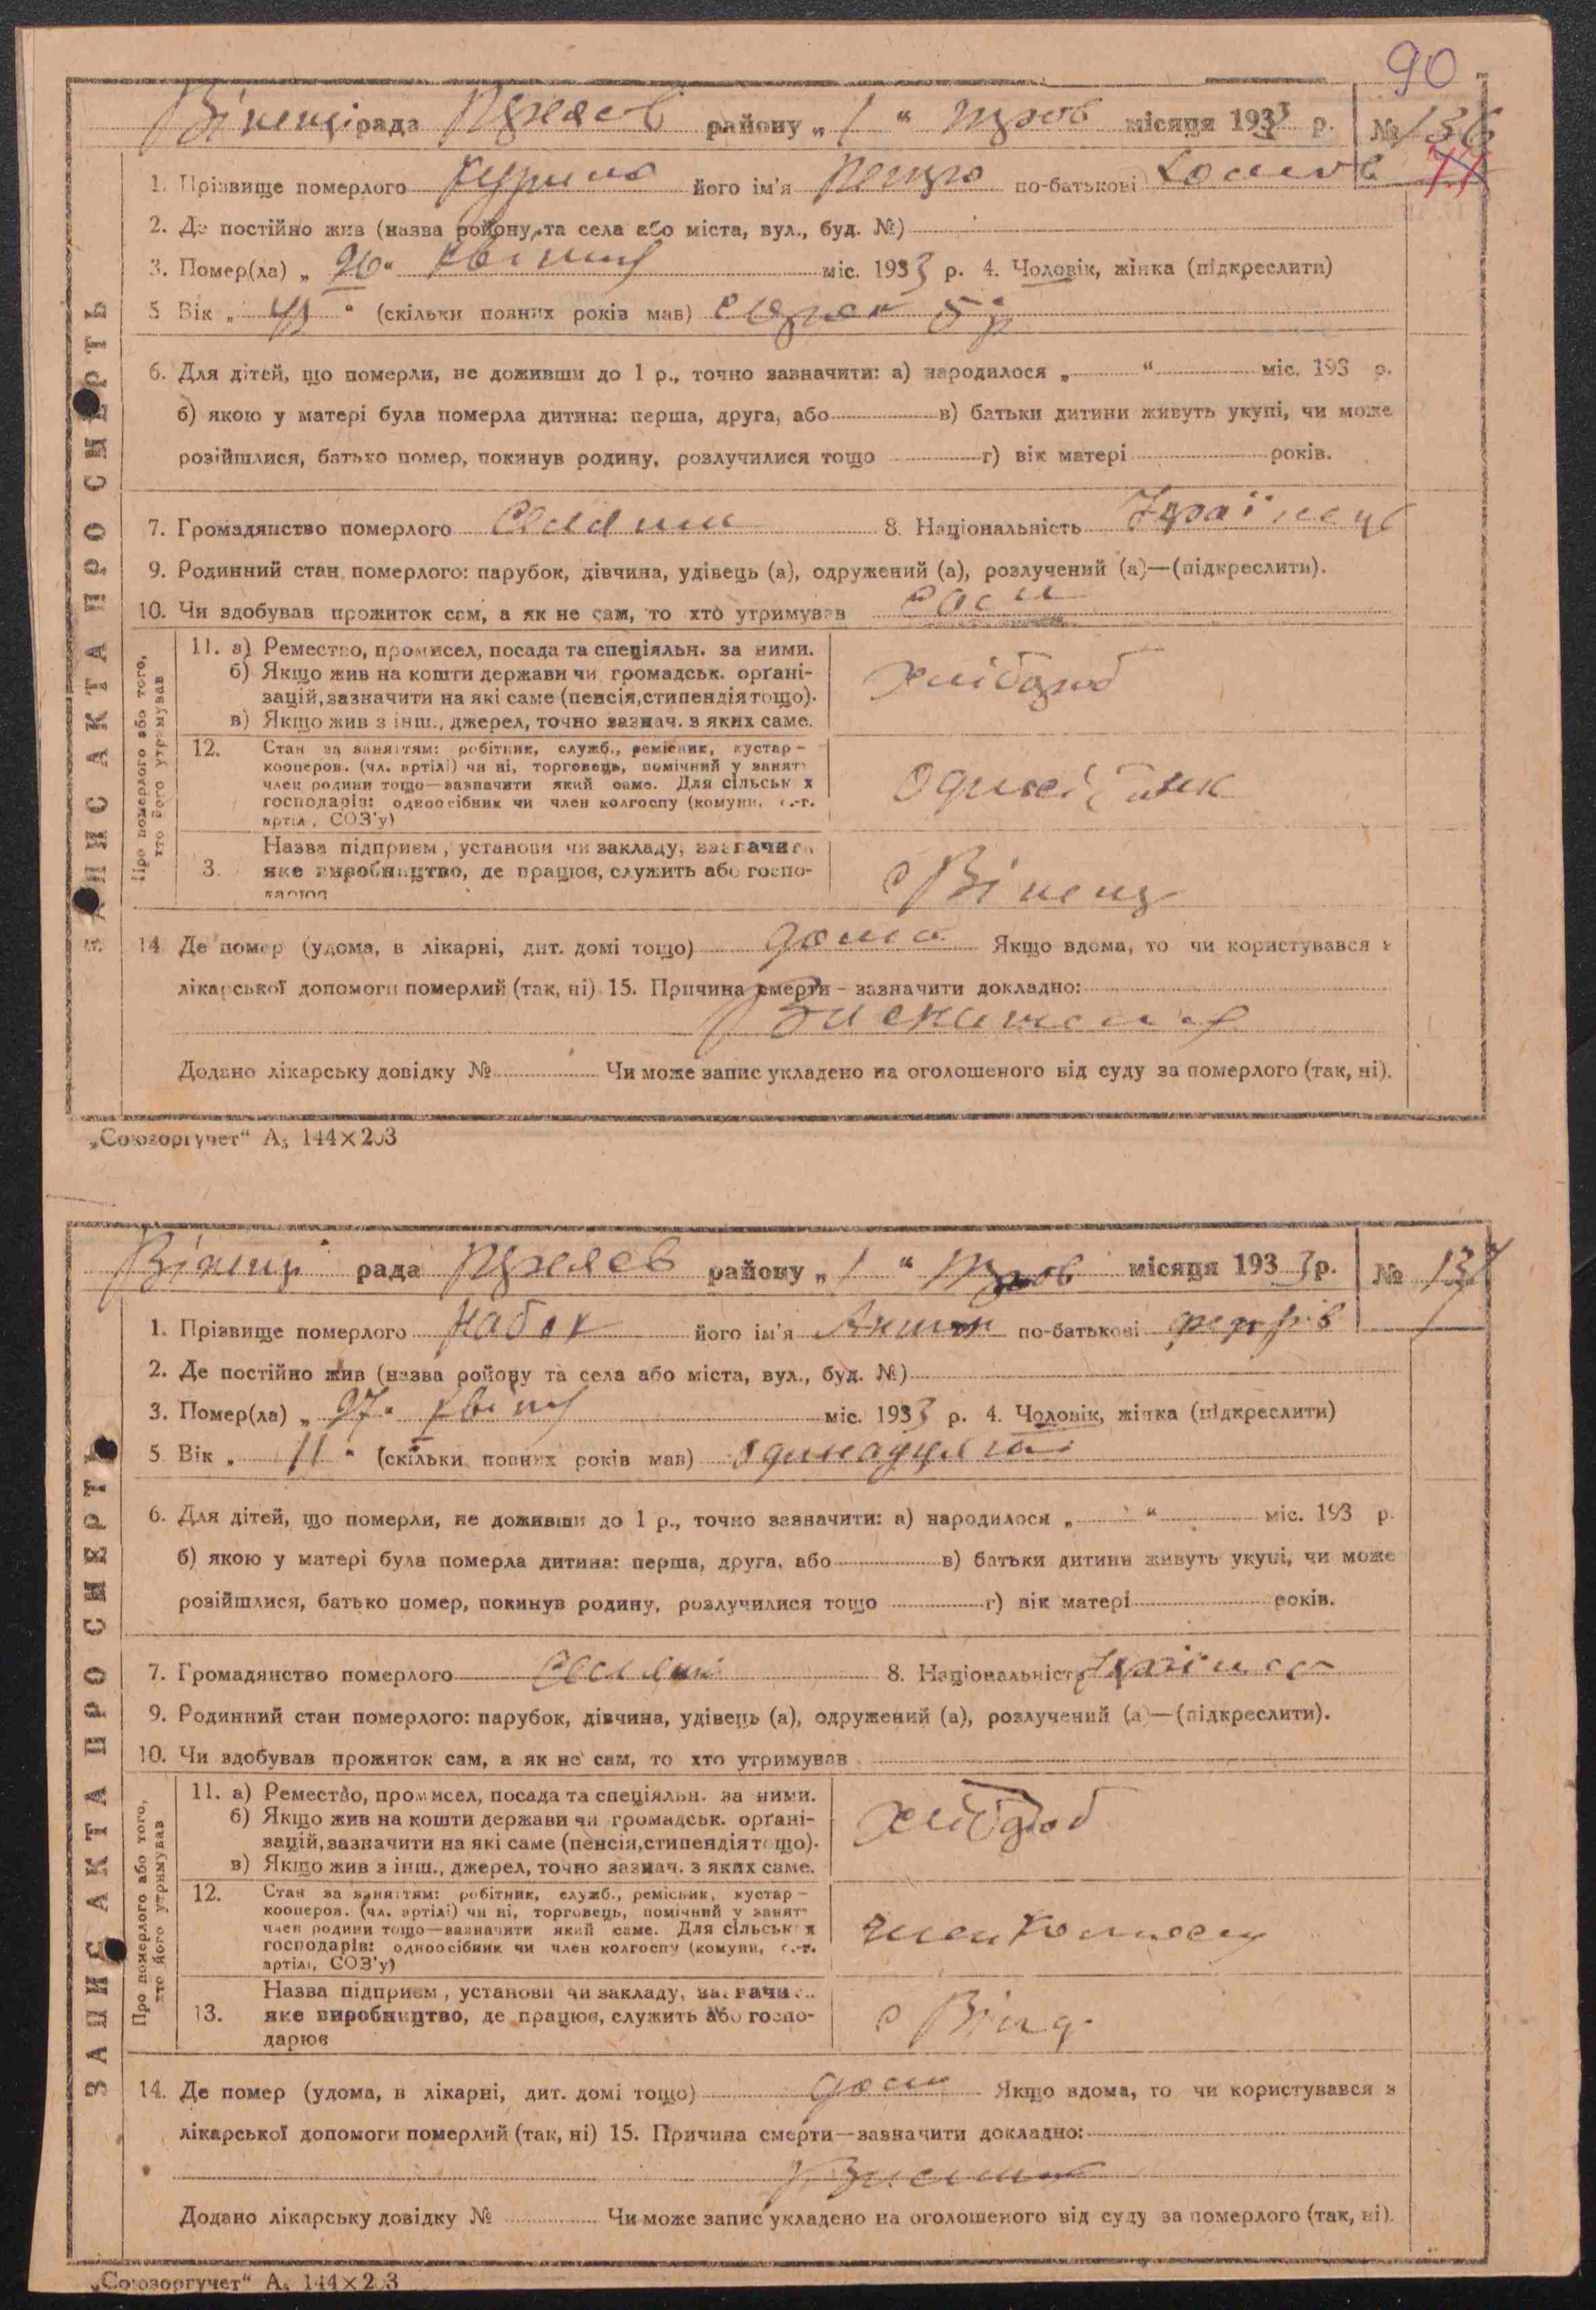 90
рада району „ 1 “ місяця 1933 р. № 136
77
1. Прізвище померлого його ім'я Петро по-батькові
2. Де постійно жив (назва району, та села або міста, вул., буд. №)
3. Помер(ла) „ 26 “ квітня міс. 1933 р. 4. Чоловік, жінка (підкреслити)
5 Вік „ “ (скільки повних років мав) сорок 5 р
6. Для дітей, що померли, не доживши до 1 р., точно зазначити: а) народилося „ “ міс. 193 р.
б) якою у матері була померла дитина: перша, друга, або в) батьки дитини живуть укупі, чи може
розійшлися, батько помер, покинув родину, розлучилися тощо г) вік матері років.
7. Громадянство померлого 8. Національність Українець
9. Родинний стан померлого: парубок, дівчина, удівець (а), одружений (а), розлучений (а)—(підкреслити).
10. Чи здобував прожиток сам, а як не сам, то хто утримував сам
ЗАПИС АКТА ПРО СМЕРТЬ
Про померлого або того, хто його утримував
11. а) Ремество, промисел, посада та спеціяльн. за ними.
б) Якщо жив на кошти держави чи громадськ. орґані-
зацій, зазначити на які саме (пенсія, стипендія тощо).
в) Якщо жив з інш., джерел, точно зазнач. з яких саме.
хлібороб
12. Стан за заняттям: робітник, служб., ремісник, кустар–
кооперов. (чл. артілі) чи ні, торговець, помічний у занят
член родини тощо—зазначити який саме. Для сільськ х
господарів: одноосібник чи член колгоспу (комуни, с.-г.
артілі, СОЗ'у)
одноосібник
Назва підприєм , установи чи закладу, зазначити
3. яке виробництво, де працює, служить або госпо-
дарює
с
14 Де помер (удома, в лікарні, дит. домі тощо) дома Якщо вдома, то чи користувався з
лікарської допомоги померлий (так, ні) 15. Причина смерти – зазначити докладно:
Додано лікарську довідку № Чи може запис укладено на оголошеного від суду за померлого (так, ні).
„Союзоргучет“ А₅ 144×203
рада району „ 1 “ місяця 1933 р. № 137
1. Прізвище померлого Набок його ім'я по-батькові
2. Де постійно жив (назва району та села або міста, вул., буд. №)
3. Помер(ла) „ 27 “ квітн міс. 1933 р. 4. Чоловік, жінка (підкреслити)
5 Вік „ 11 “ (скільки повних років мав)
6. Для дітей, що померли, не доживши до 1 р., точно зазначити: а) народилося „ “ міс. 193 р.
б) якою у матері була померла дитина: перша, друга, або в) батьки дитини живуть укупі, чи може
розійшлися, батько помер, покинув родину, розлучилися тощо г) вік матері років.
7. Громадянство померлого 8. Національність
9. Родинний стан померлого: парубок, дівчина, удівець (а), одружений (а), розлучений (а)—(підкреслити).
10. Чи здобував прожиток сам, а як не сам, то хто утримував
ЗАПИС АКТА ПРО СМЕРТЬ
Про померлого або того, хто його утримував
11. а) Ремество, промисел, посада та спеціяльн. за ними.
б) Якщо жив на кошти держави чи громадськ. орґані-
зацій, зазначити на які саме (пенсія, стипендія тощо).
в) Якщо жив з інш., джерел, точно зазнач. з яких саме.
хлібороб
12. Стан за заняттям: робітник, служб., ремісник, кустар–
кооперов. (чл. артілі) чи ні, торговець, помічний у занят
член родини тощо—зазначити який саме. Для сільськ х
господарів: одноосібник чи член колгоспу (комуни, с.-г.
артілі, СОЗ'у)
член
Назва підприєм , установи чи закладу, зазначити
13. яке виробництво, де працює, служить або госпо-
дарює
с
14. Де помер (удома, в лікарні, дит. домі тощо) дома Якщо вдома, то чи користувався з
лікарської допомоги померлий (так, ні) 15. Причина смерти—зазначити докладно:
Додано лікарську довідку № Чи може запис укладено на оголошеного від суду за померлого (так, ні).
„Союзоргучет“ А₅ 144×203